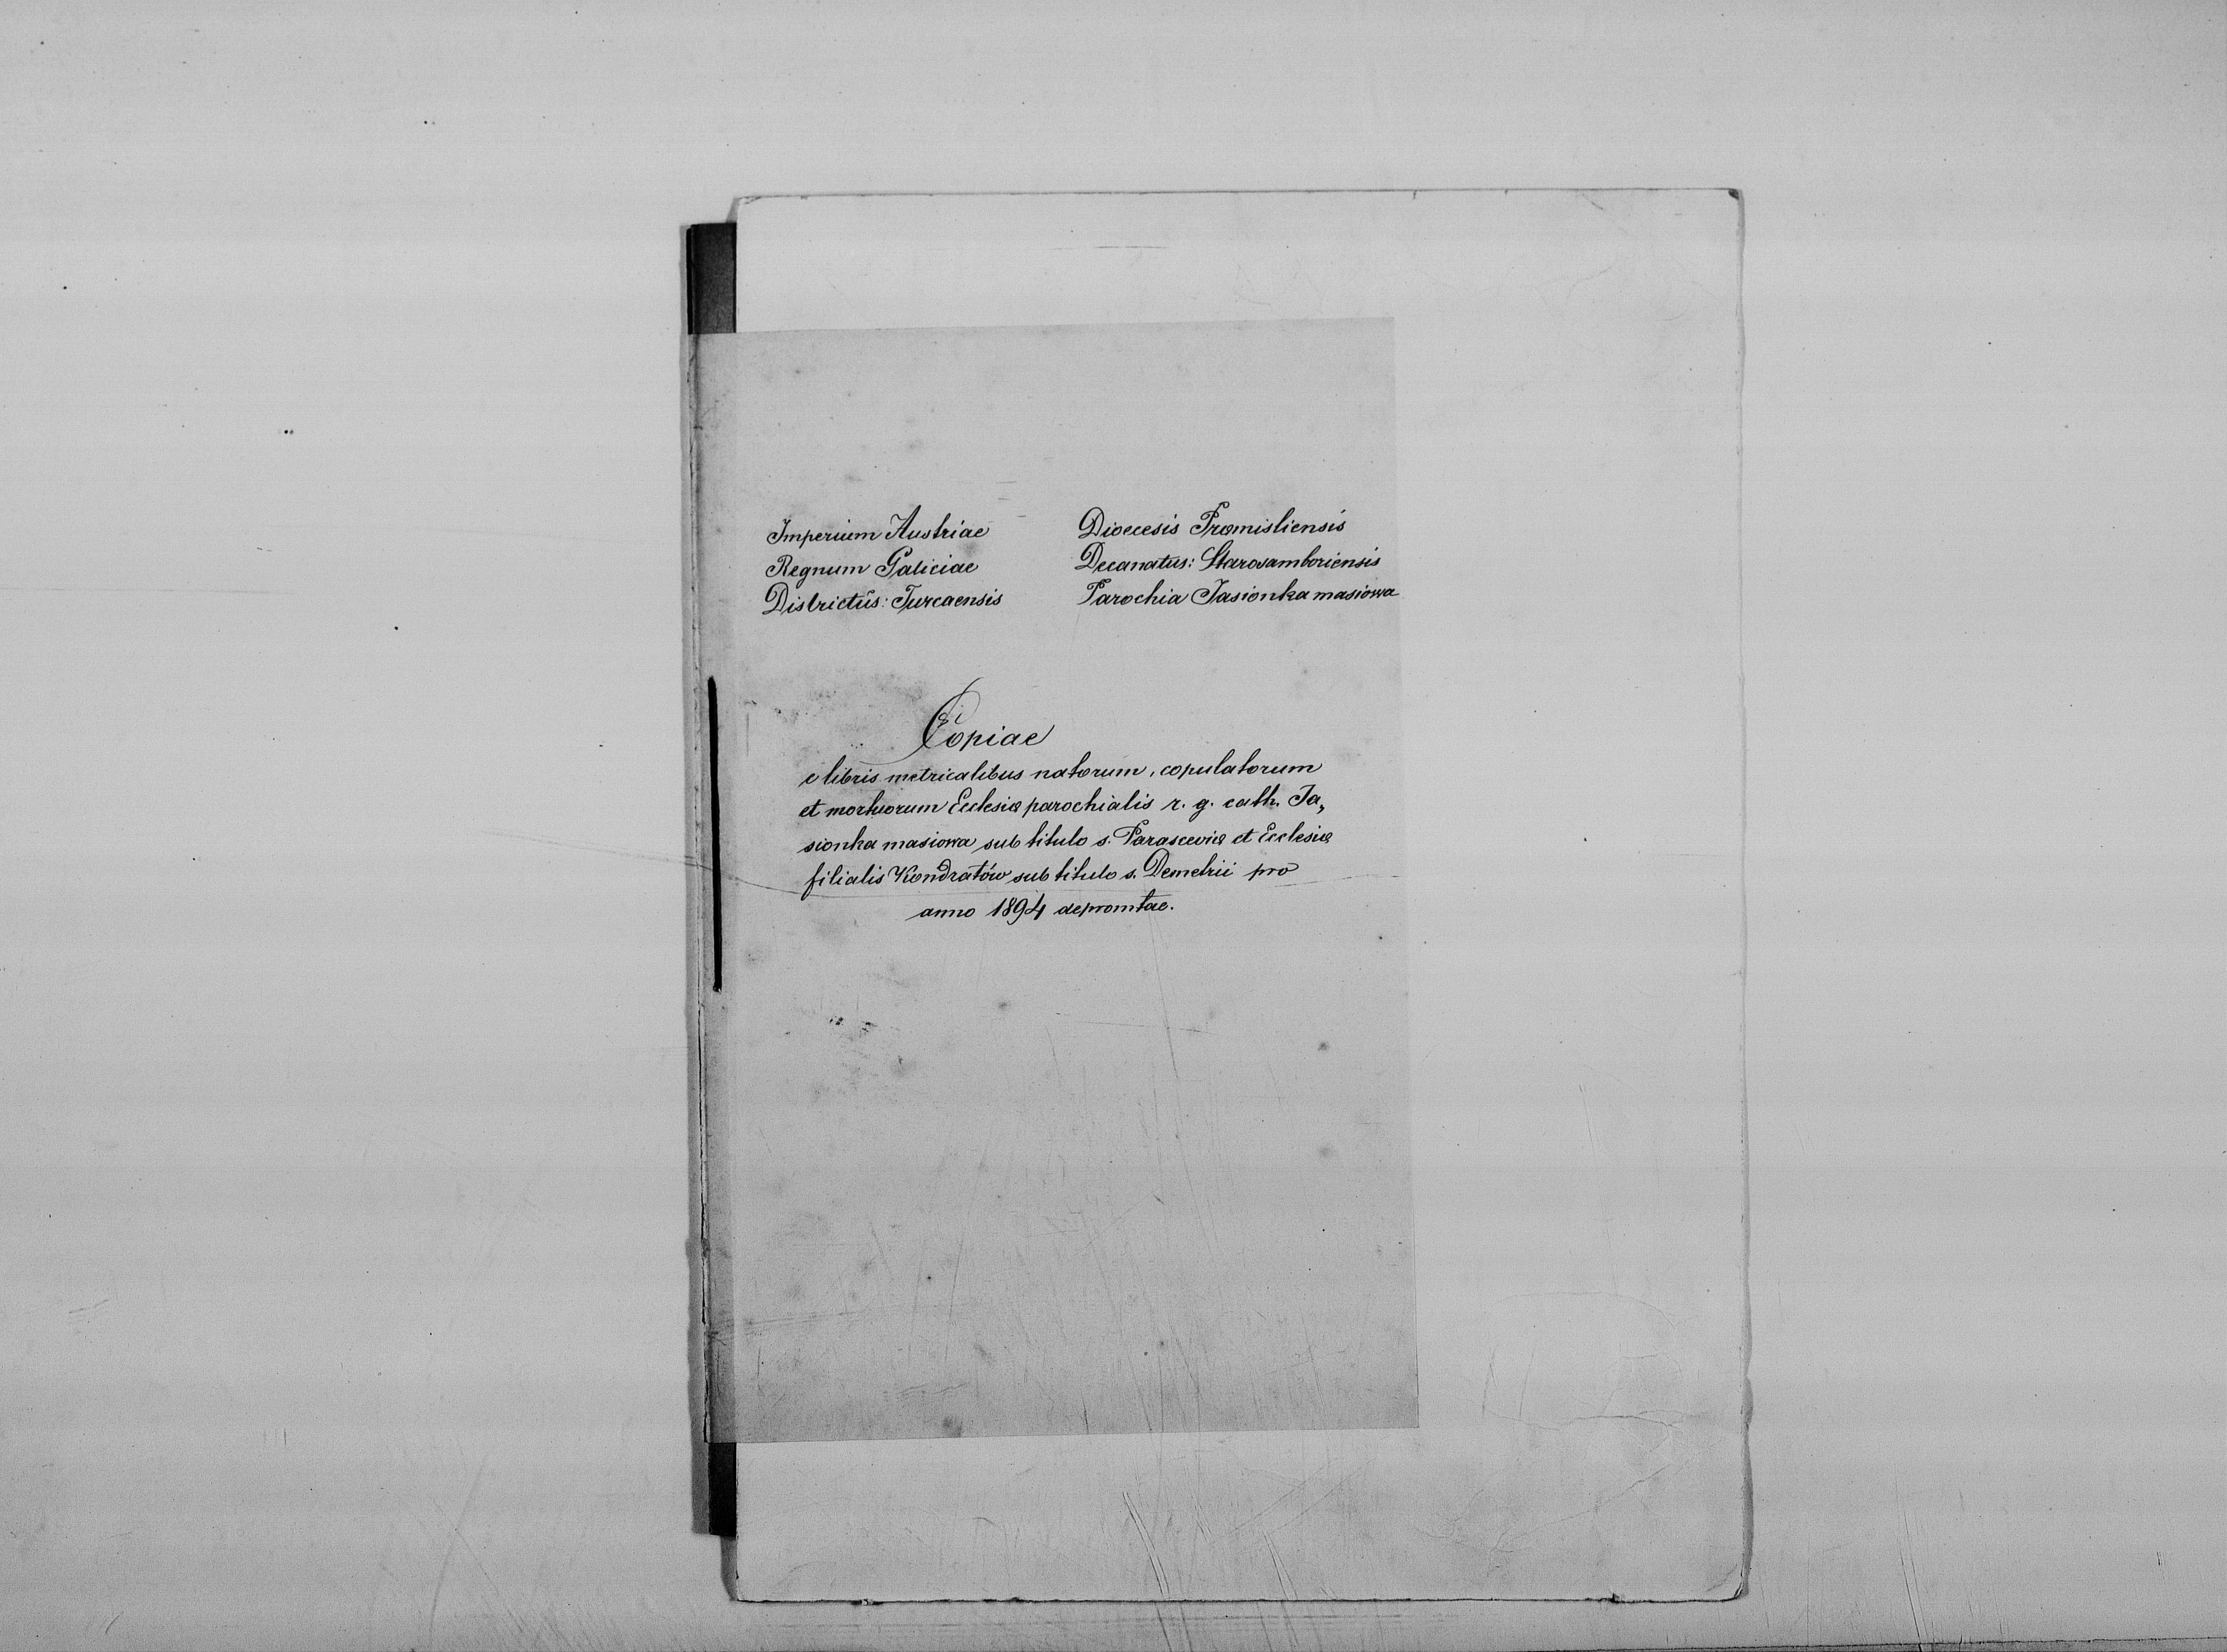 Imperium Austriae
Regnum Galiciae
Districtus: Turcaensis
Dioecesis Premisliensis
Decanatus: Starosamboriensis
Parochia Jasionka masiowa
Copiae
e libris metricalibus natorum, copulatorum
et mortuorum Ecclesiæ parochialis r. g. cath. Ja„
sionka masiowa sub titulo s. Parasceviæ et Ecclesiæ
filialis Kondratów sub titulo s. Demetrii pro
anno 1894 depromtae.